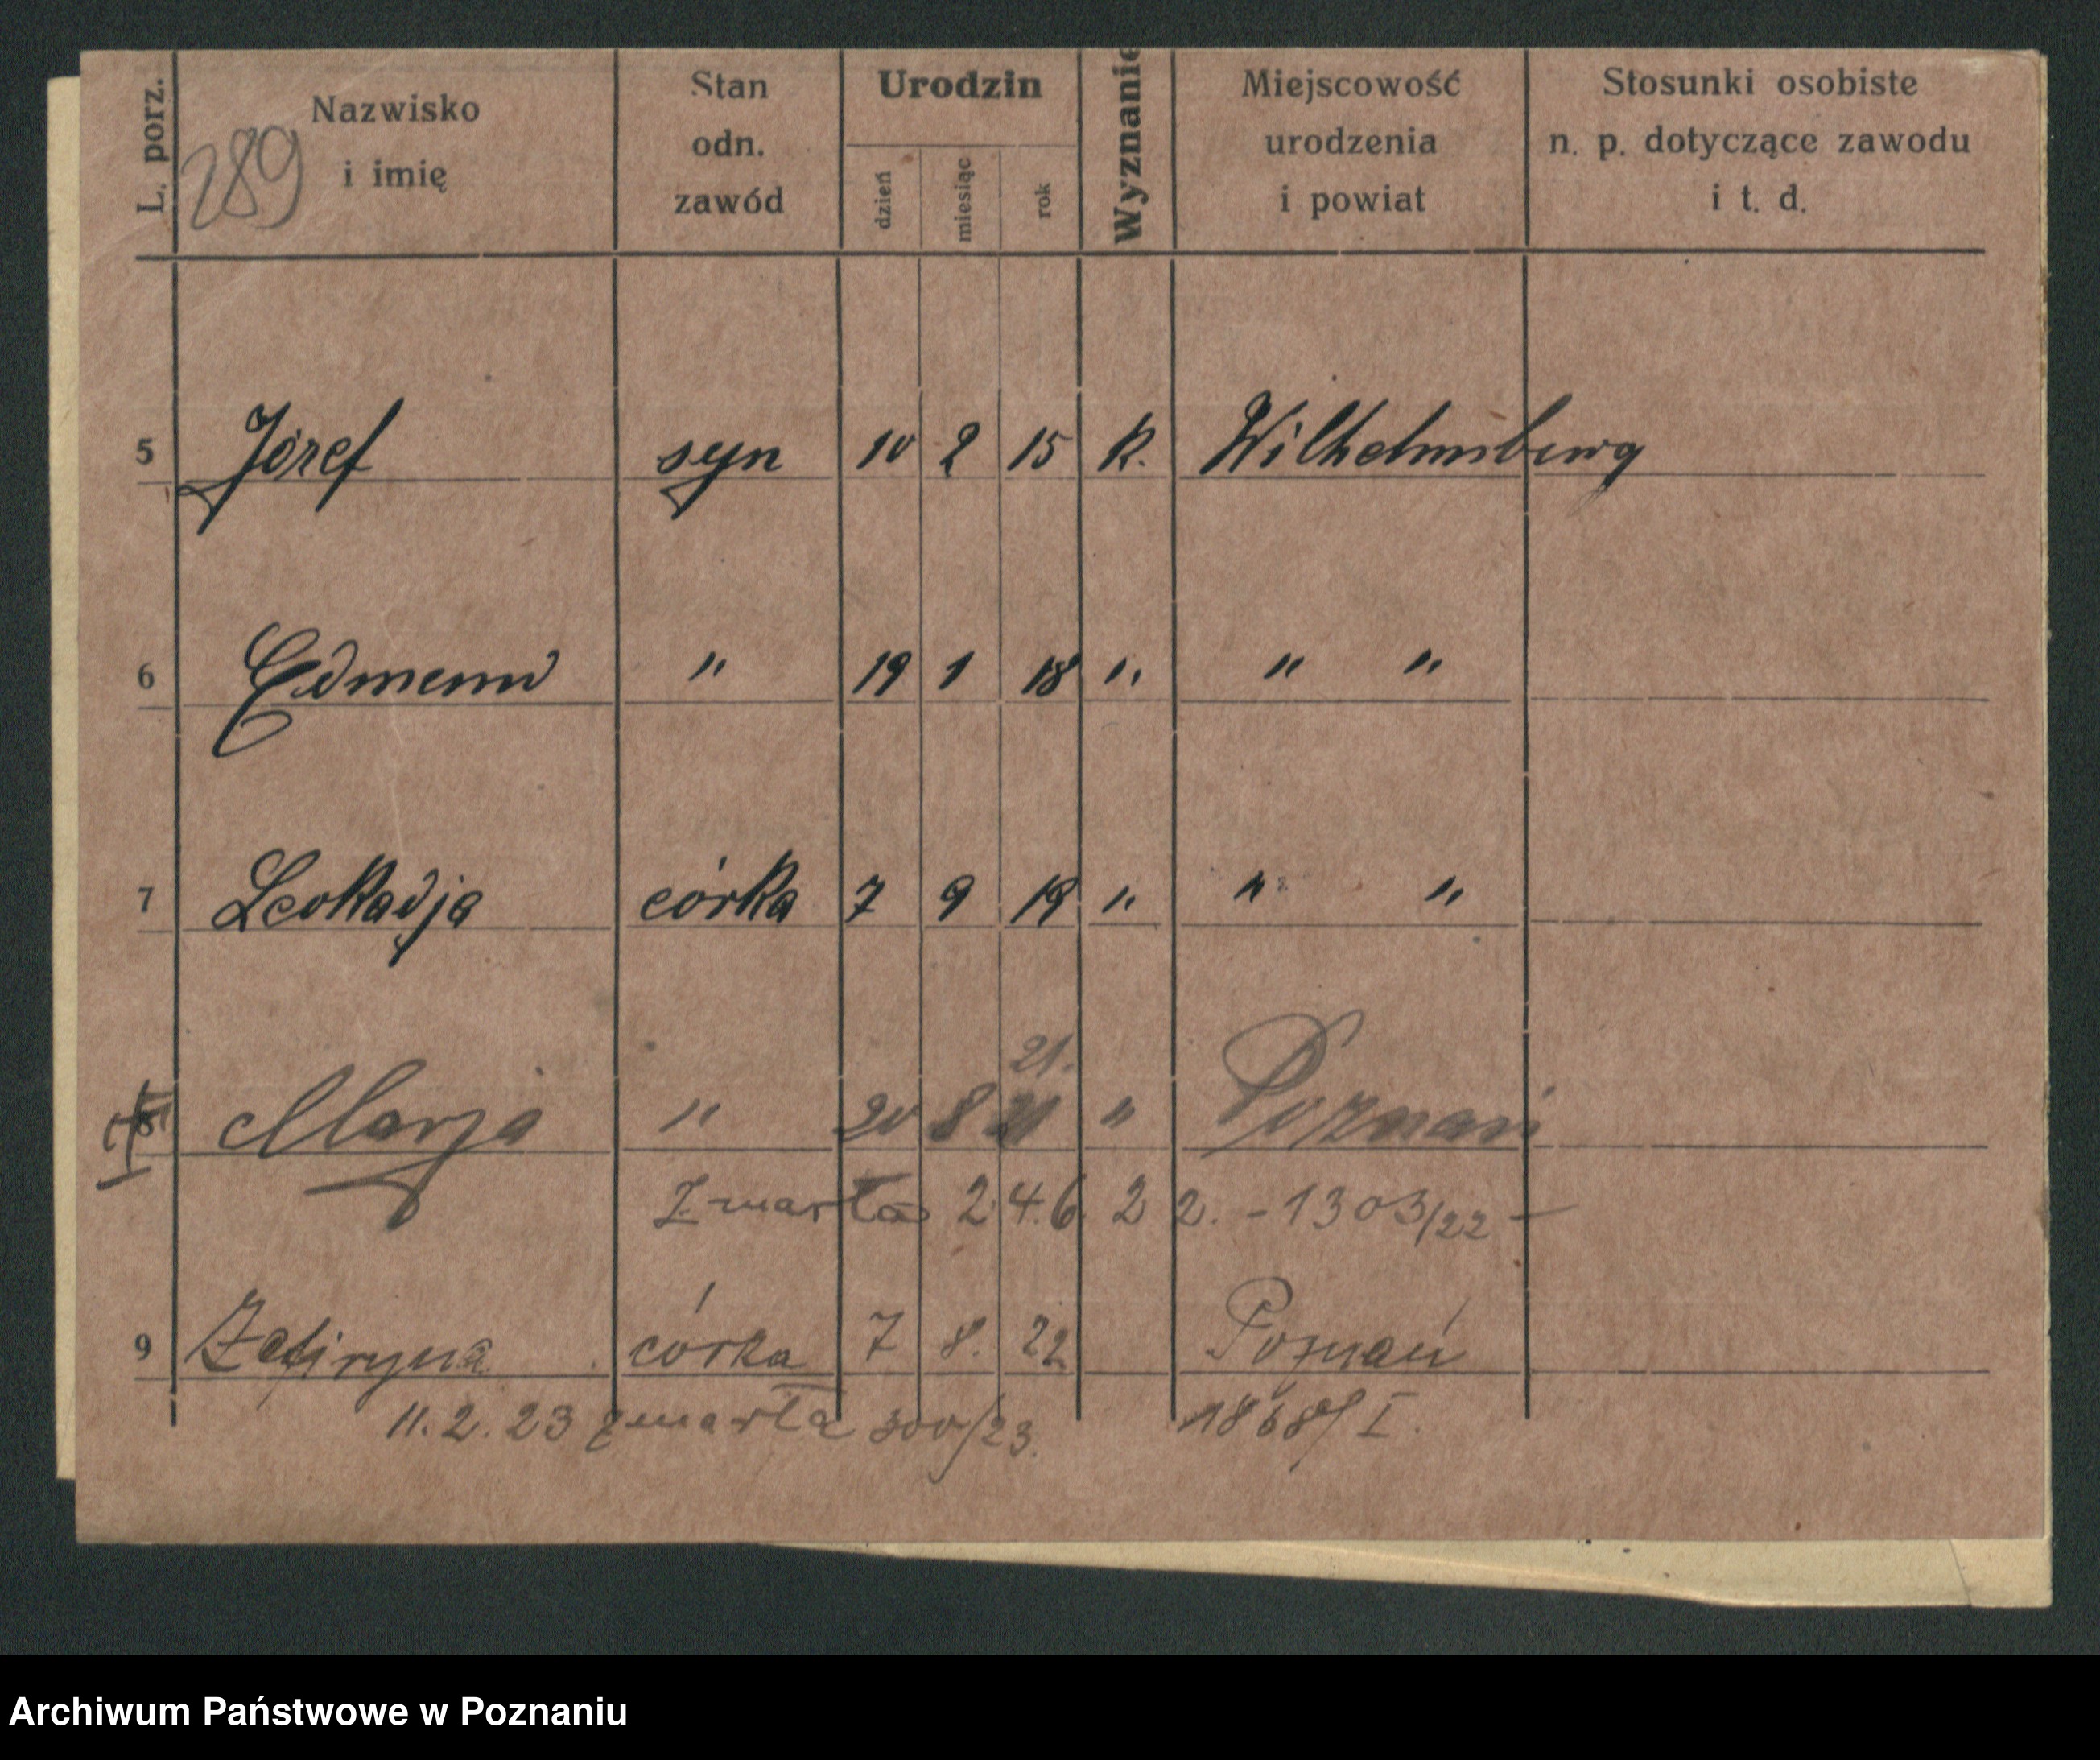 L. porz. Nazwisko i imię Stan odn. zawód Urodzin dzień miesiąc rok Wyznanie Miejscowość urodzenia i powiat Stosunki osobiste n. p. dotyczące zawodu i t. d.
289
5 Józef syn 10 2 15 k. Wilhelmsberg
6 Edmund " 19 1 18 " " "
7 Leokadja córka 7 9 19 " " "
21.
8 Marja " 20 8 21 " Poznań
Zmarła 24.6.22. - 1303/22 -
9 Zefiryna córka 7 8. 22 Poznań
11.2.23 zmarła 300/23. 1868/I.
Archiwum Państwowe w Poznaniu